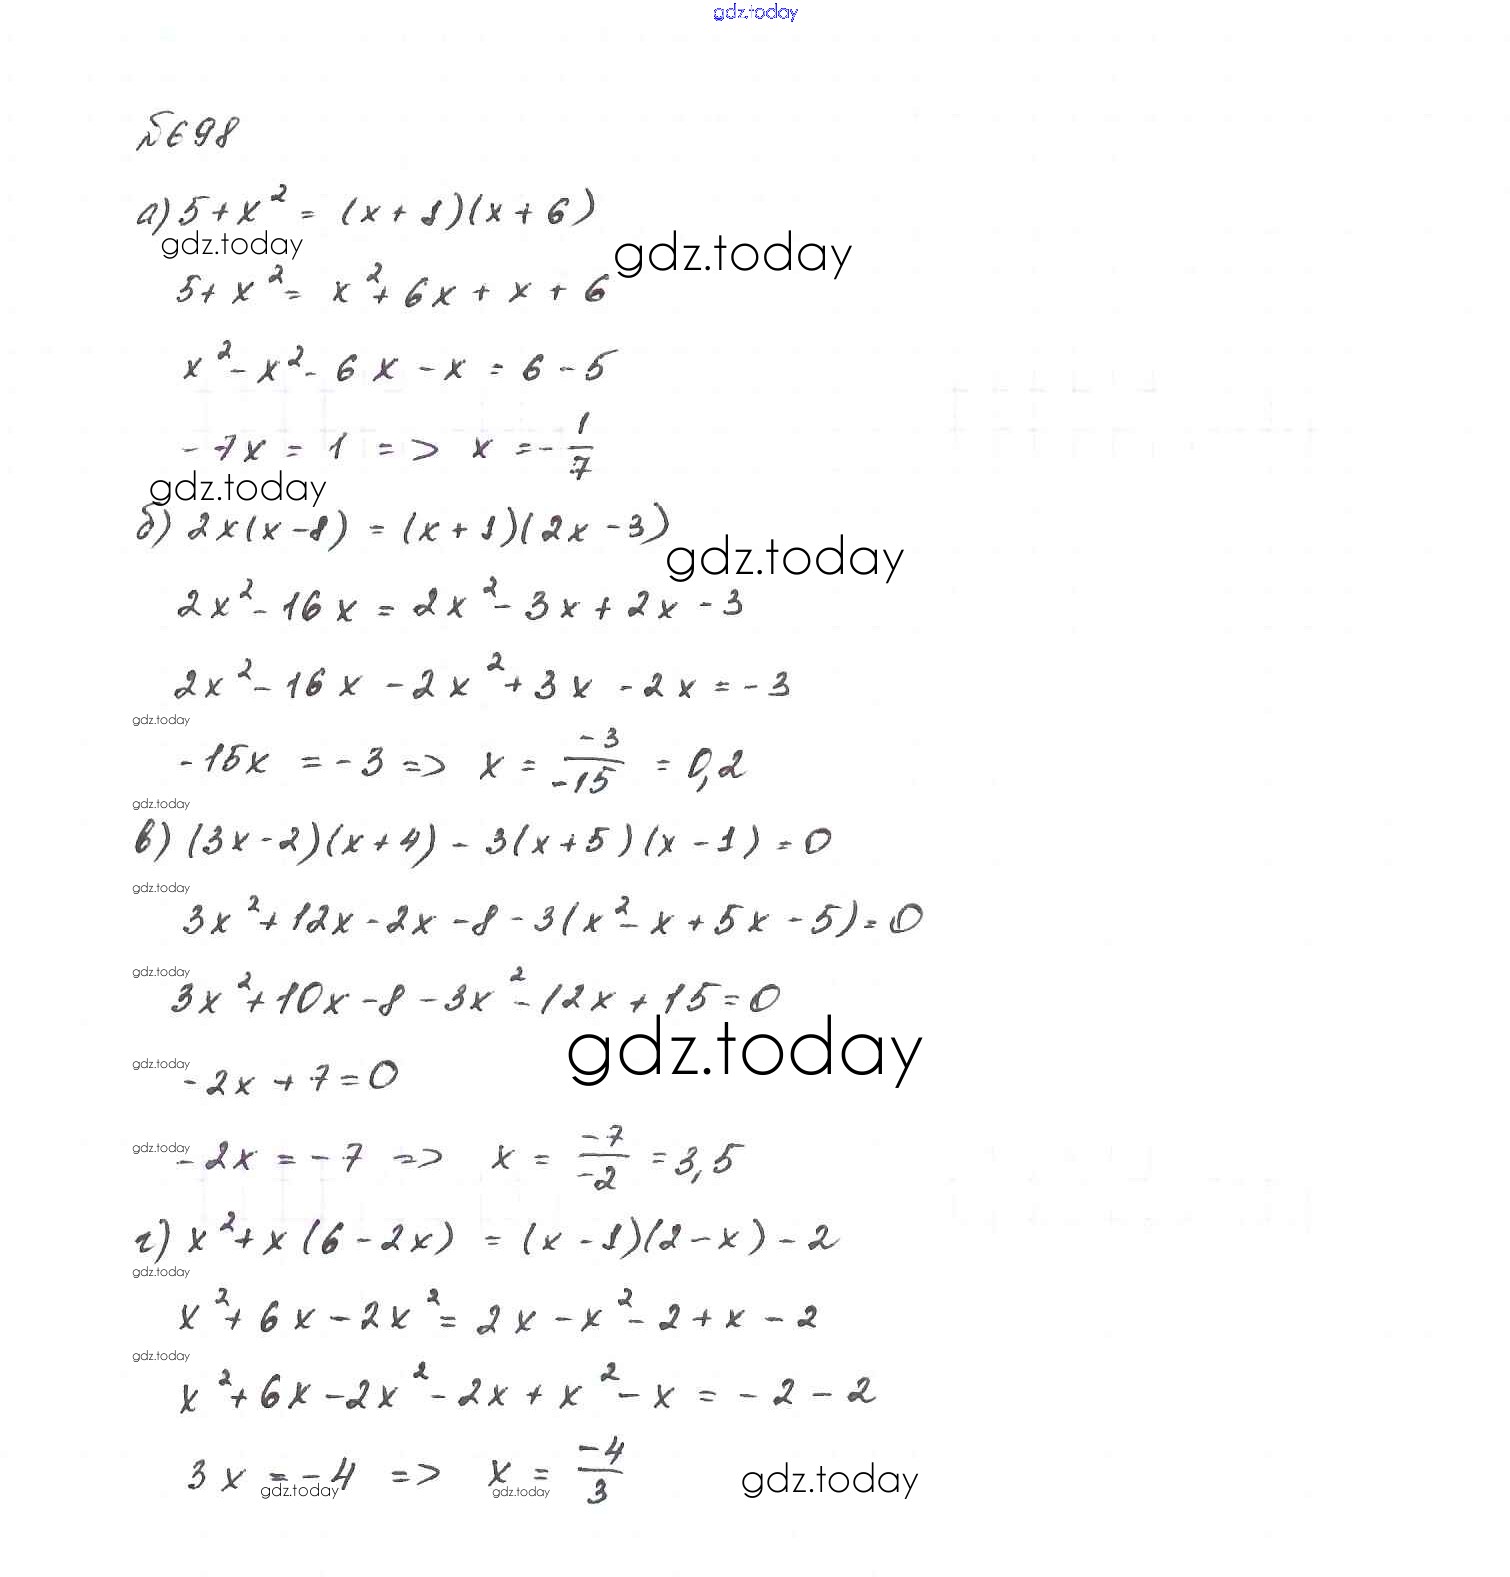 gdz.today
№698
а) 5 + x² = (x + 1)(x + 6)
gdz.today
gdz.today
5 + x² = x² + 6x + x + 6
x² - x² - 6x - x = 6 - 5
-7x = 1 => x = -1/7
gdz.today
б) 2x(x - 8) = (x + 1)(2x - 3)
gdz.today
2x² - 16x = 2x² - 3x + 2x - 3
2x² - 16x - 2x² + 3x - 2x = -3
gdz.today
-15x = -3 => x = -3/-15 = 0,2
gdz.today
в) (3x - 2)(x + 4) - 3(x + 5)(x - 1) = 0
gdz.today
3x² + 12x - 2x - 8 - 3(x² - x + 5x - 5) = 0
gdz.today
3x² + 10x - 8 - 3x² - 12x + 15 = 0
gdz.today
gdz.today
-2x + 7 = 0
gdz.today
-2x = -7 => x = -7/-2 = 3,5
г) x² + x(6 - 2x) = (x - 1)(2 - x) - 2
gdz.today
x² + 6x - 2x² = 2x - x² - 2 + x - 2
gdz.today
x² + 6x - 2x² - 2x + x² - x = -2 - 2
3x = -4 => x = -4/3
gdz.today
gdz.today
gdz.today